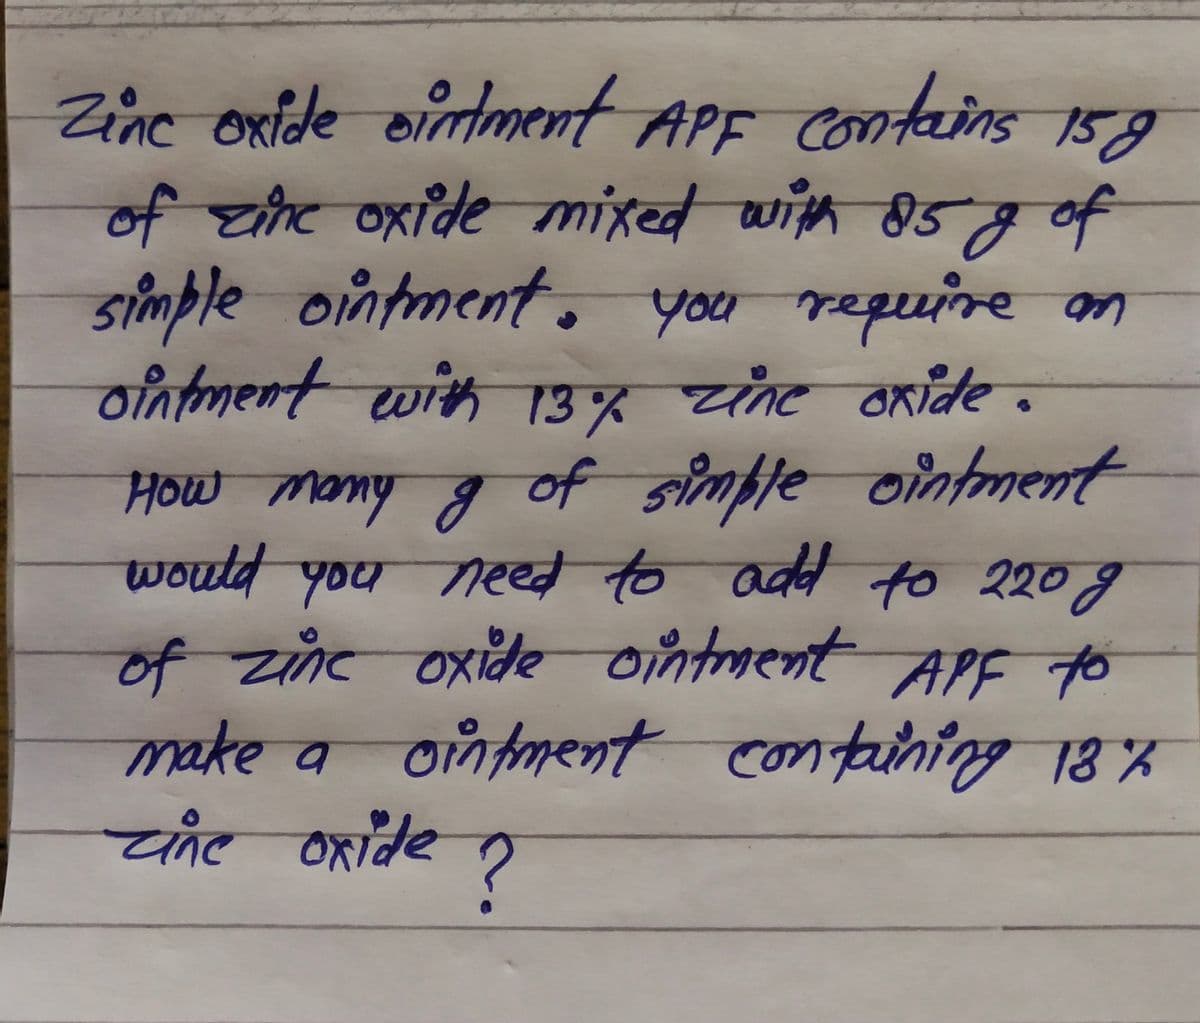 Zinc oxide ointment APF contains 15g
of zinc oxide mixed with 85 g of
simple ointment. you require an
ointment with 13% zinc oxide.
How many g of simple ointment
would you need to add to 220 g
of zinc oxide ointment APF to
make a ointment containing 13%
zinc oxide ?